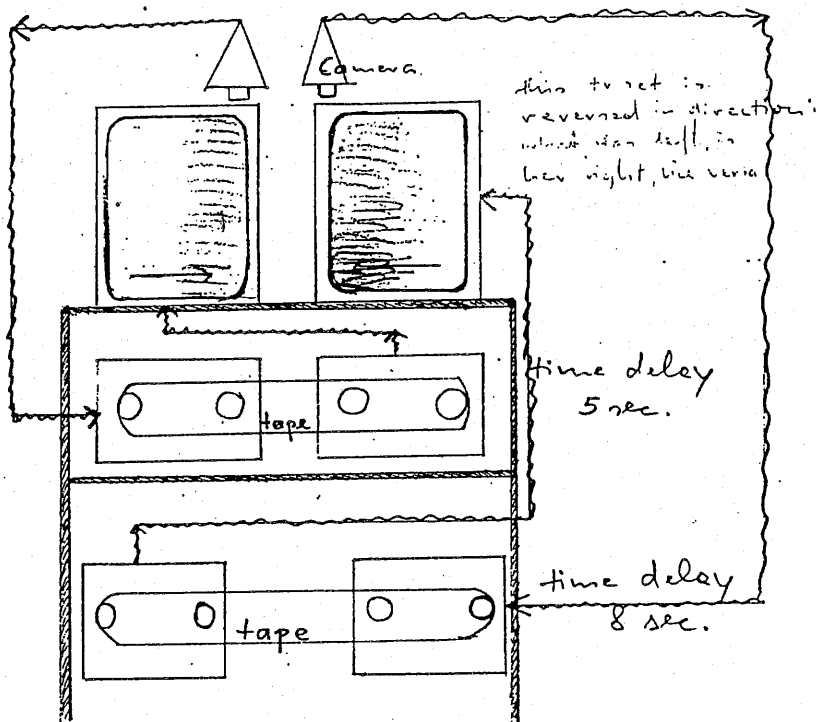 Camera.
this tv set is
reversed in direction:
what was left, is
her right, vice versa
time delay
5 sec.
tape
time delay
8 sec.
tape